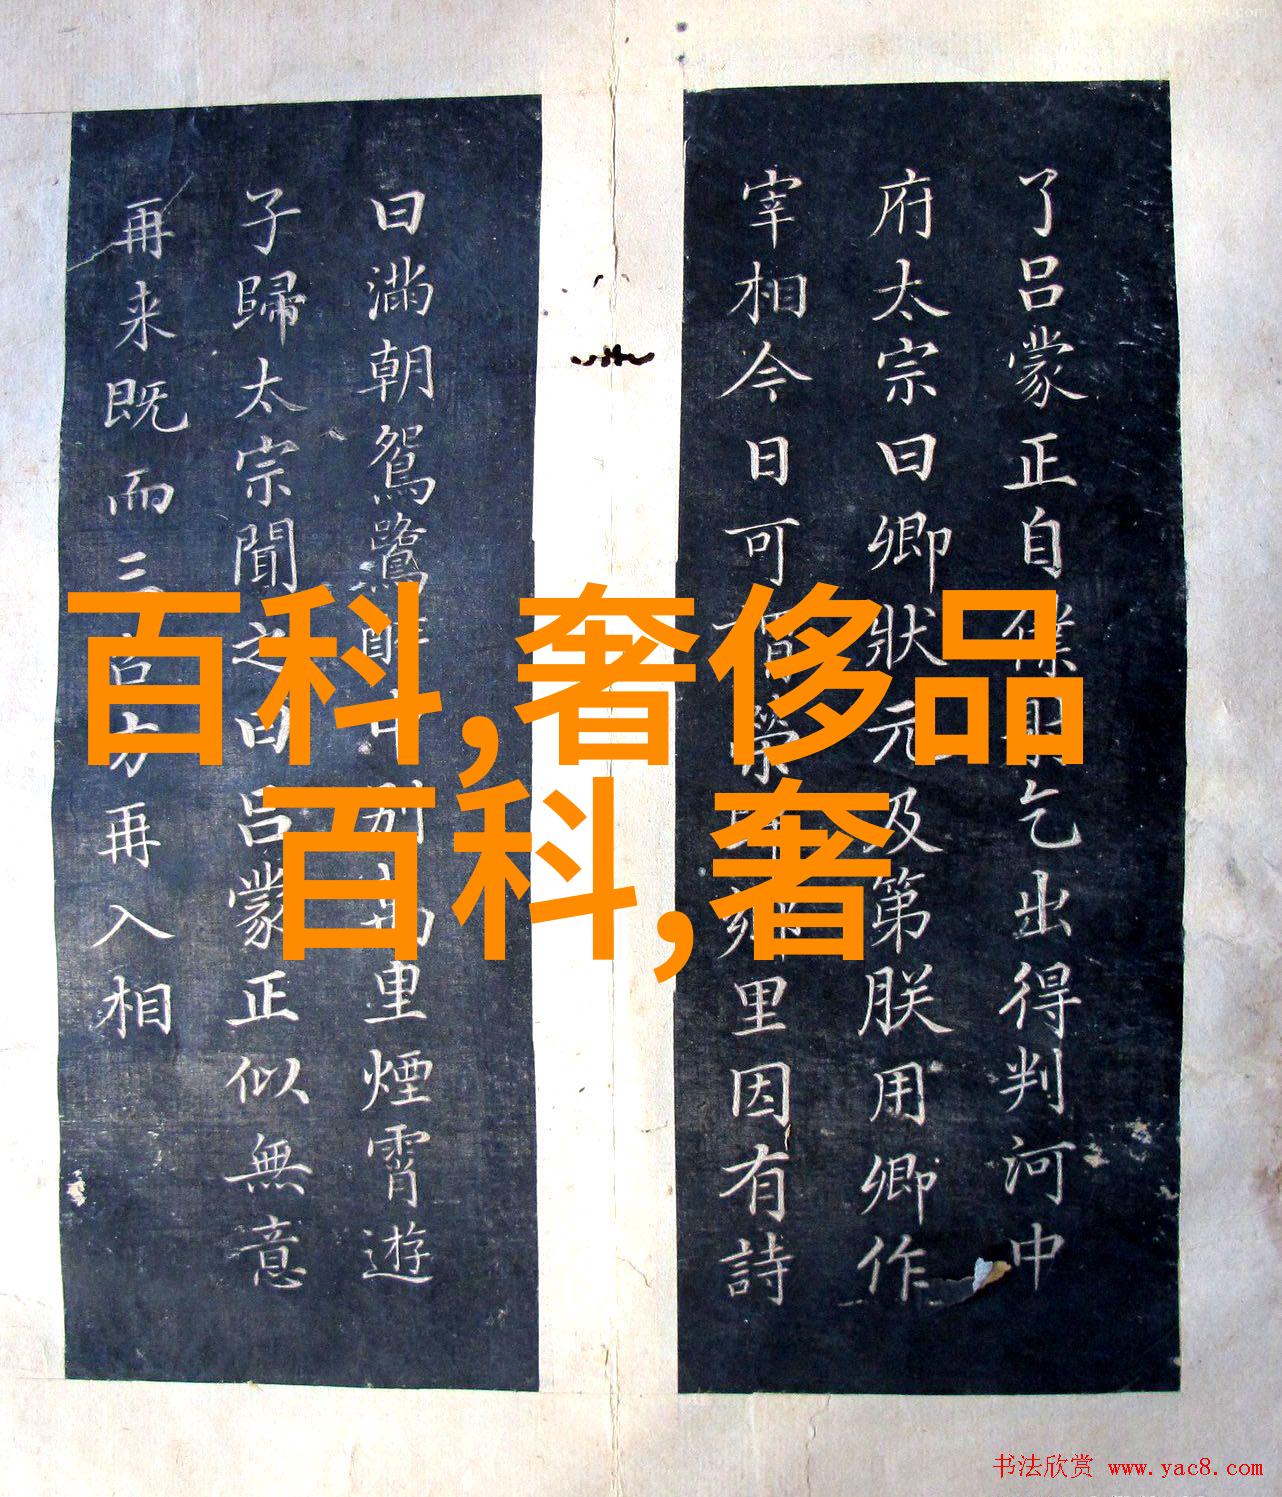 百科,奢侈品
百科,奢
了吕蒙正自僕乞出得判河中
府太宗曰卿狀元及第朕用卿作
宰相今日可榮里因有詩
曰滿朝鴛鷺醉別里煙霄遊
子歸太宗聞之曰吕蒙正似無意
再来既而三方再入相
书法欣赏 www.yac8.com